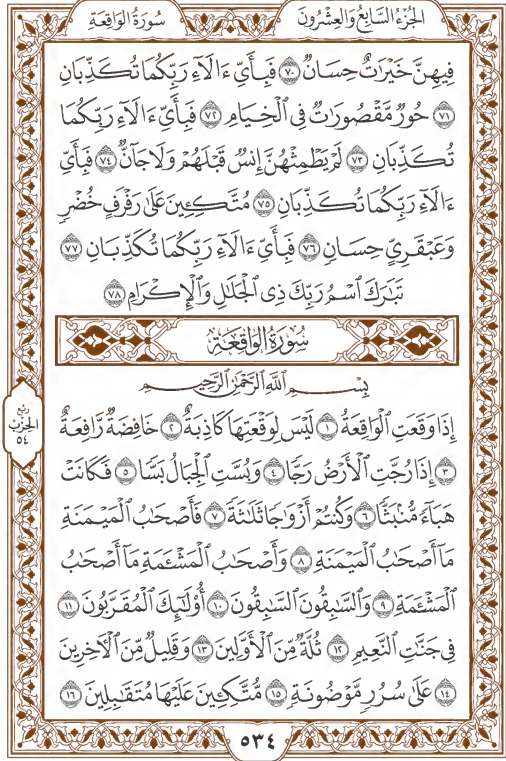 سُورَةُ الوَاقِعَةِ الجُزْءُ السَّابِعُ وَالعِشْرُونَ
فِيهِنَّ خَيْرَٰتٌ حِسَانٌ ٧٠ فَبِأَيِّ ءَالَآءِ رَبِّكُمَا تُكَذِّبَانِ
٧١ حُورٌ مَّقْصُورَٰتٌ فِى ٱلْخِيَامِ ٧٢ فَبِأَيِّ ءَالَآءِ رَبِّكُمَا
تُكَذِّبَانِ ٧٣ لَمْ يَطْمِثْهُنَّ إِنسٌ قَبْلَهُمْ وَلَا جَآنٌّ ٧٤ فَبِأَيِّ
ءَالَآءِ رَبِّكُمَا تُكَذِّبَانِ ٧٥ مُتَّكِـِٔينَ عَلَىٰ رَفْرَفٍ خُضْرٍ
وَعَبْقَرِىٍّ حِسَانٍ ٧٦ فَبِأَيِّ ءَالَآءِ رَبِّكُمَا تُكَذِّبَانِ ٧٧
تَبَٰرَكَ ٱسْمُ رَبِّكَ ذِى ٱلْجَلَٰلِ وَٱلْإِكْرَامِ ٧٨
سُورَةُ الوَاقِعَةِ
بِسْمِ ٱللَّهِ ٱلرَّحْمَٰنِ ٱلرَّحِيمِ
إِذَا وَقَعَتِ ٱلْوَاقِعَةُ ١ لَيْسَ لِوَقْعَتِهَا كَاذِبَةٌ ٢ خَافِضَةٌ رَّافِعَةٌ
٣ إِذَا رُجَّتِ ٱلْأَرْضُ رَجًّا ٤ وَبُسَّتِ ٱلْجِبَالُ بَسًّا ٥ فَكَانَتْ
هَبَآءً مُّنۢبَثًّا ٦ وَكُنتُمْ أَزْوَٰجًا ثَلَٰثَةً ٧ فَأَصْحَٰبُ ٱلْمَيْمَنَةِ
مَآ أَصْحَٰبُ ٱلْمَيْمَنَةِ ٨ وَأَصْحَٰبُ ٱلْمَشْـَٔمَةِ مَآ أَصْحَٰبُ
ٱلْمَشْـَٔمَةِ ٩ وَٱلسَّٰبِقُونَ ٱلسَّٰبِقُونَ ١٠ أُو۟لَٰٓئِكَ ٱلْمُقَرَّبُونَ ١١
فِى جَنَّٰتِ ٱلنَّعِيمِ ١٢ ثُلَّةٌ مِّنَ ٱلْأَوَّلِينَ ١٣ وَقَلِيلٌ مِّنَ ٱلْءَاخِرِينَ
١٤ عَلَىٰ سُرُرٍ مَّوْضُونَةٍ ١٥ مُّتَّكِـِٔينَ عَلَيْهَا مُتَقَٰبِلِينَ ١٦
ربع
الحزب
٥٤
٥٣٤